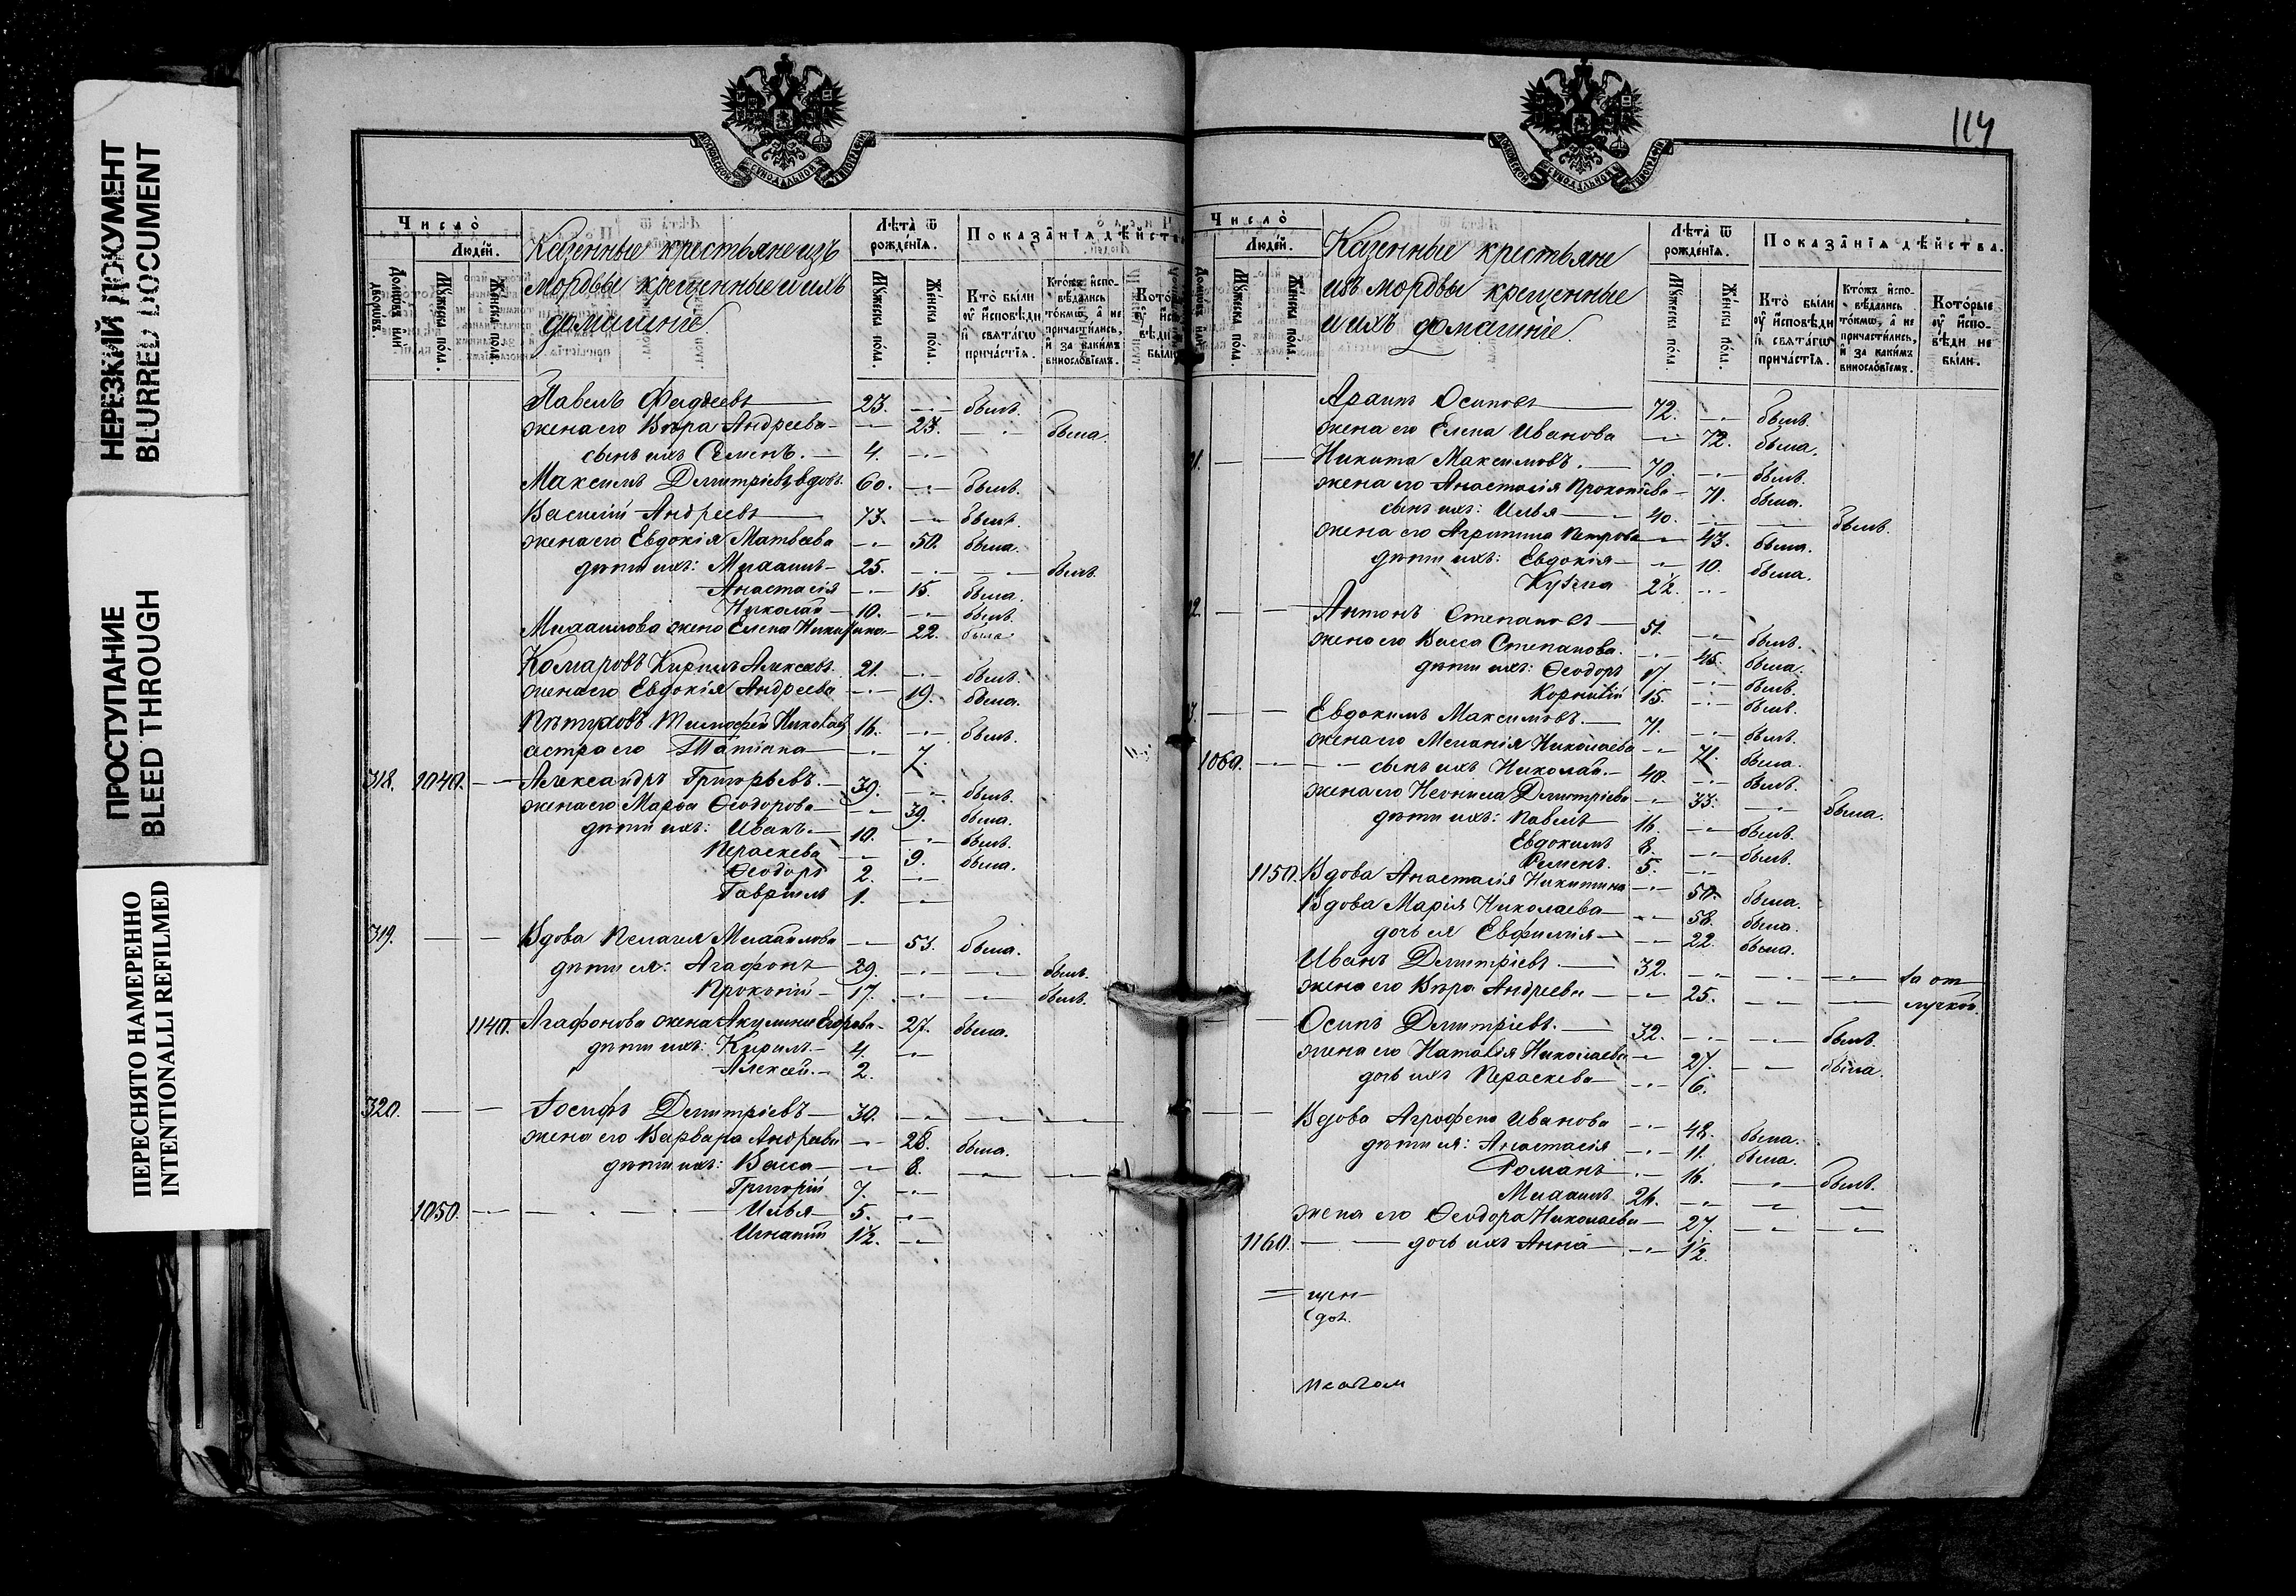 НЕРЕЗКИЙ ДОКУМЕНТ
BLURRED DOCUMENT
ПРОСТУПАНИЕ
BLEED THROUGH
ПЕРЕСНЯТО НАМЕРЕННО
INTENTIONALLI REFILMED
МОСКОВСКОЙ СѴНОДАЛЬНОЙ ТИПОГРАФІИ
Число̀
Людéй.
Домѡвъ или дворѡвъ.
Мꙋ́жеска по́ла.
Же́нска по́ла.
Казенные крестьяне изъ
мордвы крещенные и ихъ
домашніе
Лѣ́та ѿ рожде́нїѧ.
Мꙋ́жеска по́ла.
Же́нска по́ла.
Показа̑нїѧ дѣ́йства
Кто̀ бы́ли оу҆ и҆́сповѣди и҆ свѧта́гѡ прича́стїѧ.
Кто́жъ и҆спо-вѣ́дались то́кмѡ, а҆ не причасти́лись, и҆ за каки́мъ винослове́емъ.
Павелъ Фаддеевъ 23. былъ.
жена его Вѣра Андреева 23. была.
сынъ ихъ Семенъ. 4.
Максимъ Димитріевъ вдовъ. 60. былъ.
Василій Андреевъ 73. былъ.
жена его Евдокія Матвеева 50. была.
дѣти ихъ: Михаилъ 25. былъ.
Анастасія 15. была.
Николай 10. былъ.
Михаилова жена Елена 22. была
Комаровъ Кирилъ Алексеевъ. 21. былъ.
жена его Евдокія Андреева 19. была.
Пѣтуховъ Тимофей Николаевъ 16. былъ.
сестра его Татіана 7.
318. 1040. Александръ Григорьевъ. 39. былъ.
жена его Марѳа Ѳеодорова 39. была.
дѣти ихъ: Иванъ. 10. былъ.
Параскева 9. была.
Ѳеодоръ 2.
Гавріилъ 1.
319. Вдова Пелагея Михаилова 53. была.
дѣти ея: Агафонъ 29. былъ.
Прокопій 17. былъ.
1140. Агафонова жена Акулина Егорова 27. была.
дѣти ихъ: Кирилъ 4.
Алексѣй. 2.
320. Іосифъ Димитріевъ 30.
жена его Варвара Андреева 28. была.
дѣти ихъ: Васса 8.
Григорій 7.
1050. Илья 5.
Игнатій 1½.
114
МОСКОВСКОЙ СѴНОДАЛЬНОЙ ТИПОГРАФІИ
Число̀
Людéй.
Мꙋ́жеска по́ла.
Же́нска по́ла.
Казенные крестьяне
изъ мордвы крещенные
и ихъ домашніе.
Лѣ́та ѿ рожде́нїѧ.
Мꙋ́жеска по́ла.
Же́нска по́ла.
Показа̑нїѧ дѣ́йства.
Кто̀ бы́ли оу҆ и҆́сповѣди и҆ свѧта́гѡ прича́стїѧ.
Кто́жъ и҆спо-вѣ́дались то́кмѡ, а҆ не причасти́лись, и҆ за каки́мъ винослове́емъ.
Кото́рые оу҆ и҆спо-вѣди не бы́ли.
Осиповъ 72. былъ.
жена его Елена Иванова 72. была.
Никита Максимовъ. 70. былъ.
жена его Анастасія Прокопіева 71. была.
сынъ ихъ: Илья 40. былъ.
жена его Агрипина Петрова 43. была.
дѣти ихъ: Евдокія 10. была.
Кузма 2½.
Антонъ Степановъ 51. былъ.
жена его Васса Степанова. 45. была.
дѣти ихъ: Ѳеодоръ 17. былъ.
Корнилій 15. былъ.
Евдокимъ Максимовъ. 71. былъ.
жена его Меланія Николаева 71. была.
1060. сынъ ихъ Николай. 40. былъ.
жена его Неонила Димитріева 33. была.
дѣти ихъ: Павелъ 16. былъ.
Евдокимъ 8. былъ.
Семенъ. 5.
1150. Вдова Анастасія Никитина 50. была.
Вдова Марія Николаева 58. была.
дочь ея Евфимія 22. была.
Иванъ Димитріевъ. 32. За от
жена его Вѣра Андреева 25. лучкою.
Осипъ Димитріевъ. 32. былъ.
жена его Наталія Николаева 27. была.
дочь ихъ Параскева 6.
Вдова Агрофена Иванова 48. была.
дѣти ея: Анастасія 11. была.
Романъ 16. былъ.
Михаилъ 26.
жена его Ѳеодора Николаева 27.
1160. дочь ихъ Анна 1½.